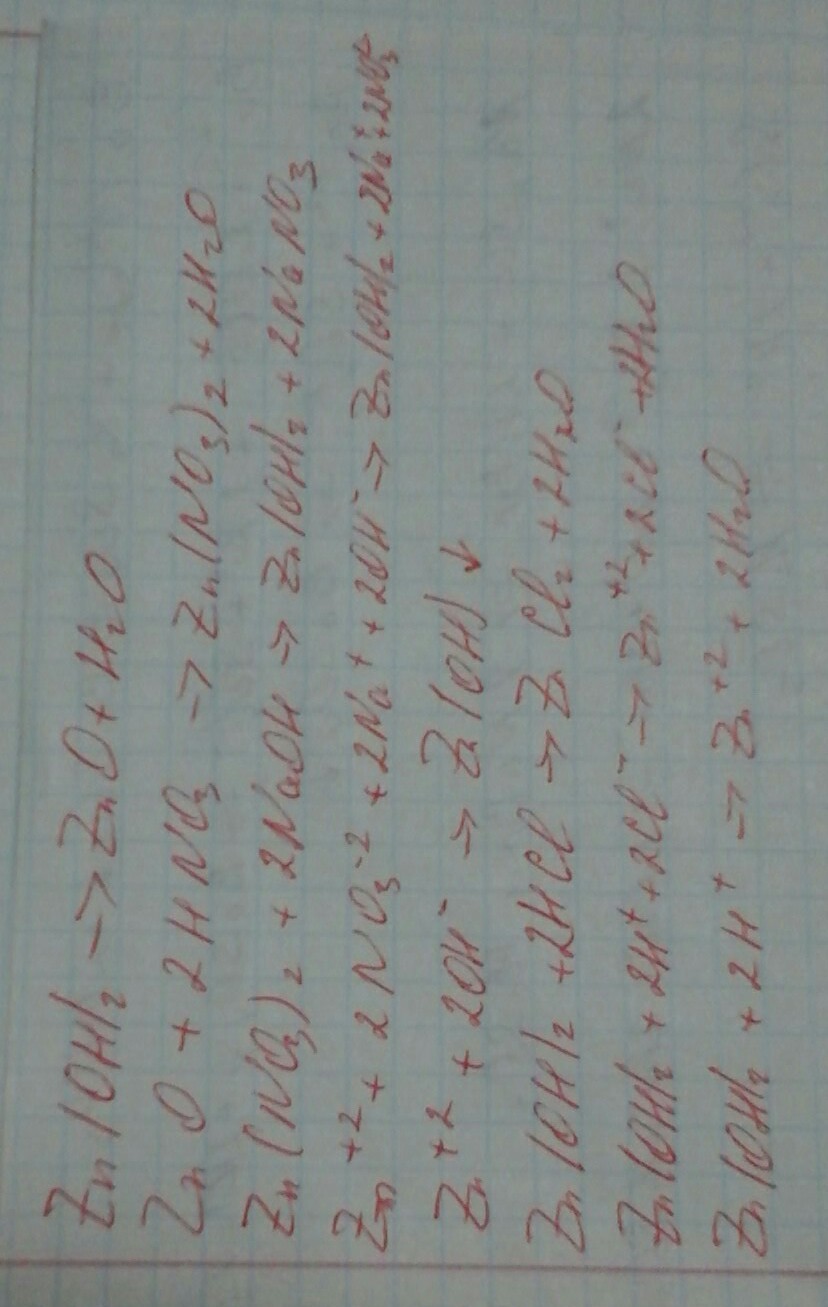 Zn(OH)₂ → ZnO + H₂O
ZnO + 2HNO₃ → Zn(NO₃)₂ + 2H₂O
Zn(NO₃)₂ + 2NaOH → Zn(OH)₂ + 2NaNO₃
Zn⁺² + 2NO₃⁻² + 2Na⁺ + 2OH⁻ → Zn(OH)₂ + 2Na⁺ + 2NO₃⁻
Zn⁺² + 2OH⁻ → Zn(OH)↓
Zn(OH)₂ + 2HCl → ZnCl₂ + 2H₂O
Zn(OH)₂ + 2H⁺ + 2Cl⁻ → Zn⁺² + 2Cl⁻ + 2H₂O
Zn(OH)₂ + 2H⁺ → Zn⁺² + 2H₂O